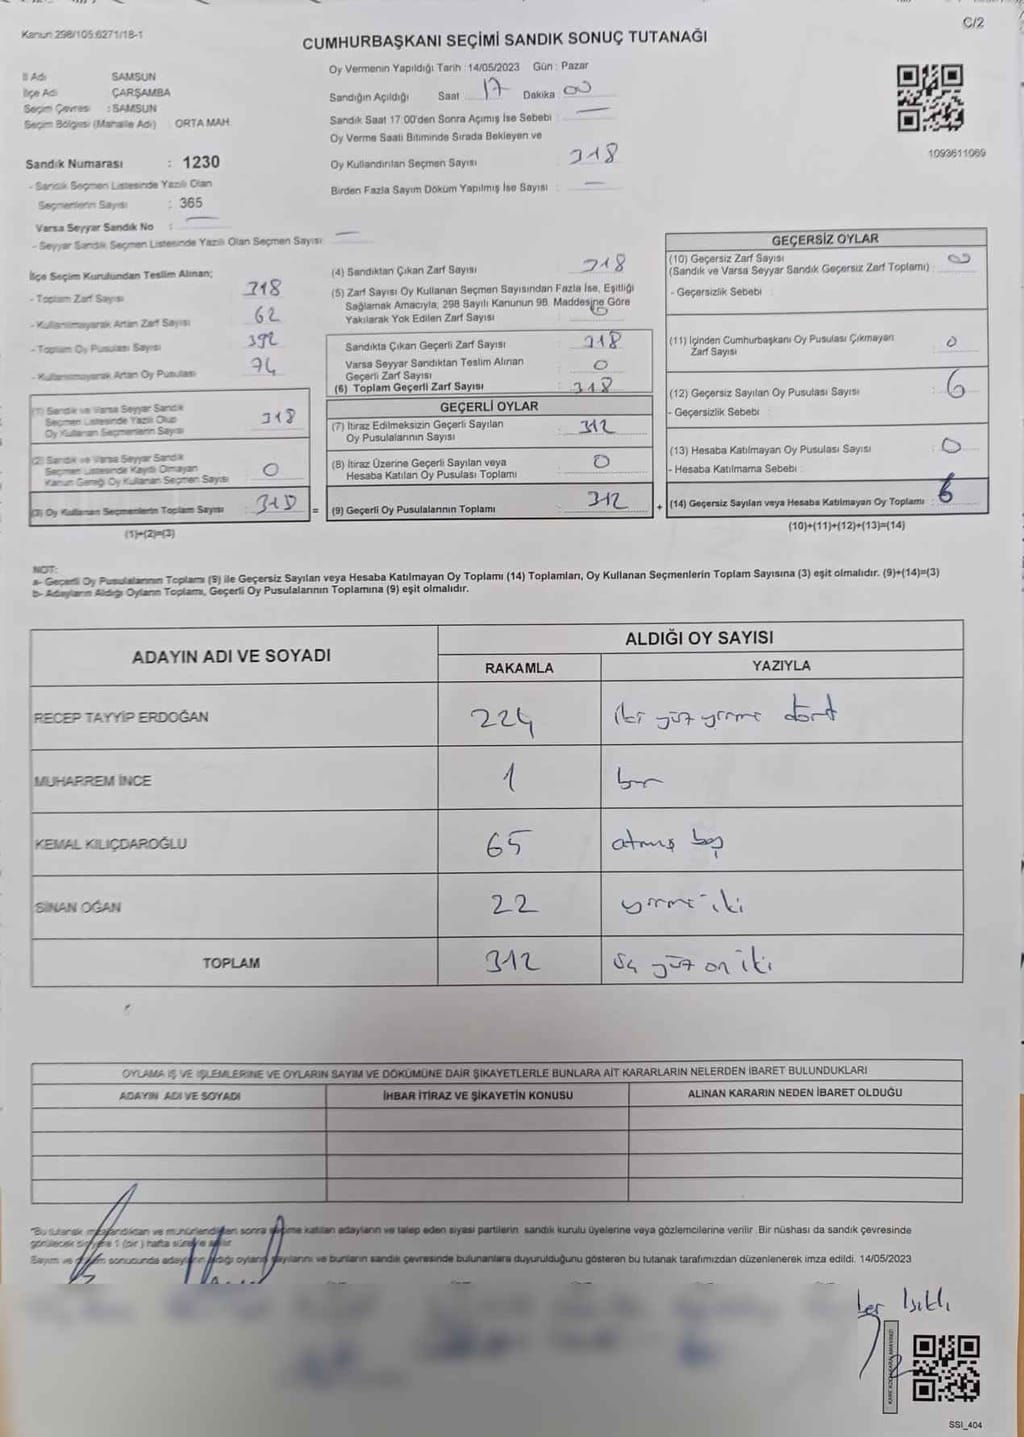 C/2
Kanun 298/105:6271/18-1
CUMHURBAŞKANI SEÇİMİ SANDIK SONUÇ TUTANAĞI
İl Adı SAMSUN
İlçe Adı ÇARŞAMBA
Seçim Çevresi : SAMSUN
Seçim Bölgesi (Mahalle Adı) : ORTA MAH.
Sandık Numarası : 1230
- Sandık Seçmen Listesinde Yazılı Olan
Seçmenlerin Sayısı : 365
Varsa Seyyar Sandık No : —
- Seyyar Sandık Seçmen Listesinde Yazılı Olan Seçmen Sayısı: —
Oy Vermenin Yapıldığı Tarih :14/05/2023 Gün : Pazar
Sandığın Açıldığı Saat 17 Dakika 00
Sandık Saat 17:00'den Sonra Açımış İse Sebebi : —
Oy Verme Saati Bitiminde Sırada Bekleyen ve
Oy Kullandırılan Seçmen Sayısı 318
Birden Fazla Sayım Döküm Yapılmış İse Sayısı : —
1093611069
İlçe Seçim Kurulundan Teslim Alınan;
- Toplam Zarf Sayısı 318
- Kullanılmayarak Artan Zarf Sayısı 62
- Toplam Oy Pusulası Sayısı 392
- Kullanılmayarak Artan Oy Pusulası 74
(1) Sandık ve Varsa Seyyar Sandık
Seçmen Listesinde Yazılı Olup
Oy Kullanan Seçmenlerin Sayısı 318
(2) Sandık ve Varsa Seyyar Sandık
Seçmen Listesinde Kaydı Olmayan
Kanun Gereği Oy Kullanan Seçmen Sayısı 0
(3) Oy Kullanan Seçmenlerin Toplam Sayısı 318 =
(1)+(2)=(3)
(4) Sandıktan Çıkan Zarf Sayısı 318
(5) Zarf Sayısı Oy Kullanan Seçmen Sayısından Fazla İse, Eşitliği
Sağlamak Amacıyla, 298 Sayılı Kanunun 98. Maddesine Göre
Yakılarak Yok Edilen Zarf Sayısı
Sandıkta Çıkan Geçerli Zarf Sayısı : 318
Varsa Seyyar Sandıktan Teslim Alınan
Geçerli Zarf Sayısı : 0
(6) Toplam Geçerli Zarf Sayısı : 318
GEÇERLİ OYLAR
(7) İtiraz Edilmeksizin Geçerli Sayılan
Oy Pusulalarının Sayısı : 312
(8) İtiraz Üzerine Geçerli Sayılan veya
Hesaba Katılan Oy Pusulası Toplamı : 0
(9) Geçerli Oy Pusulalarının Toplamı : 312 +
GEÇERSİZ OYLAR
(10) Geçersiz Zarf Sayısı
(Sandık ve Varsa Seyyar Sandık Geçersiz Zarf Toplamı) :
- Geçersizlik Sebebi :
(11) İçinden Cumhurbaşkanı Oy Pusulası Çıkmayan
Zarf Sayısı : 0
(12) Geçersiz Sayılan Oy Pusulası Sayısı : 6
- Geçersizlik Sebebi :
(13) Hesaba Katılmayan Oy Pusulası Sayısı : 0
- Hesaba Katılmama Sebebi :
(14) Geçersiz Sayılan veya Hesaba Katılmayan Oy Toplamı : 6
(10)+(11)+(12)+(13)=(14)
NOT:
a- Geçerli Oy Pusulalarının Toplamı (9) ile Geçersiz Sayılan veya Hesaba Katılmayan Oy Toplamı (14) Toplamları, Oy Kullanan Seçmenlerin Toplam Sayısına (3) eşit olmalıdır. (9)+(14)=(3)
b- Adayların Aldığı Oyların Toplamı, Geçerli Oy Pusulalarının Toplamına (9) eşit olmalıdır.
ADAYIN ADI VE SOYADI ALDIĞI OY SAYISI
RAKAMLA YAZIYLA
RECEP TAYYİP ERDOĞAN 224 iki yüz yirmi dört
MUHARREM İNCE 1 bir
KEMAL KILIÇDAROĞLU 65 atmış beş
SİNAN OĞAN 22 yirmi iki
TOPLAM 312 üç yüz on iki
OYLAMA İŞ VE İŞLEMLERİNE VE OYLARIN SAYIM VE DÖKÜMÜNE DAİR ŞİKAYETLERLE BUNLARA AİT KARARLARIN NELERDEN İBARET BULUNDUKLARI
ADAYIN ADI VE SOYADI İHBAR İTİRAZ VE ŞİKAYETİN KONUSU ALINAN KARARIN NEDEN İBARET OLDUĞU
"Bu tutanak imzalandıktan ve mühürlendikten sonra seçime katılan adayların ve talep eden siyasi partilerin sandık kurulu üyelerine veya gözlemcilerine verilir. Bir nüshası da sandık çevresinde
görülecek bir yere 1 (bir) hafta süreyle asılır.
Sayım ve döküm sonucunda adayların aldığı oyların sayılarını ve bunların sandık çevresinde bulunanlara duyurulduğunu gösteren bu tutanak tarafımızdan düzenlenerek imza edildi. 14/05/2023
SSI_404